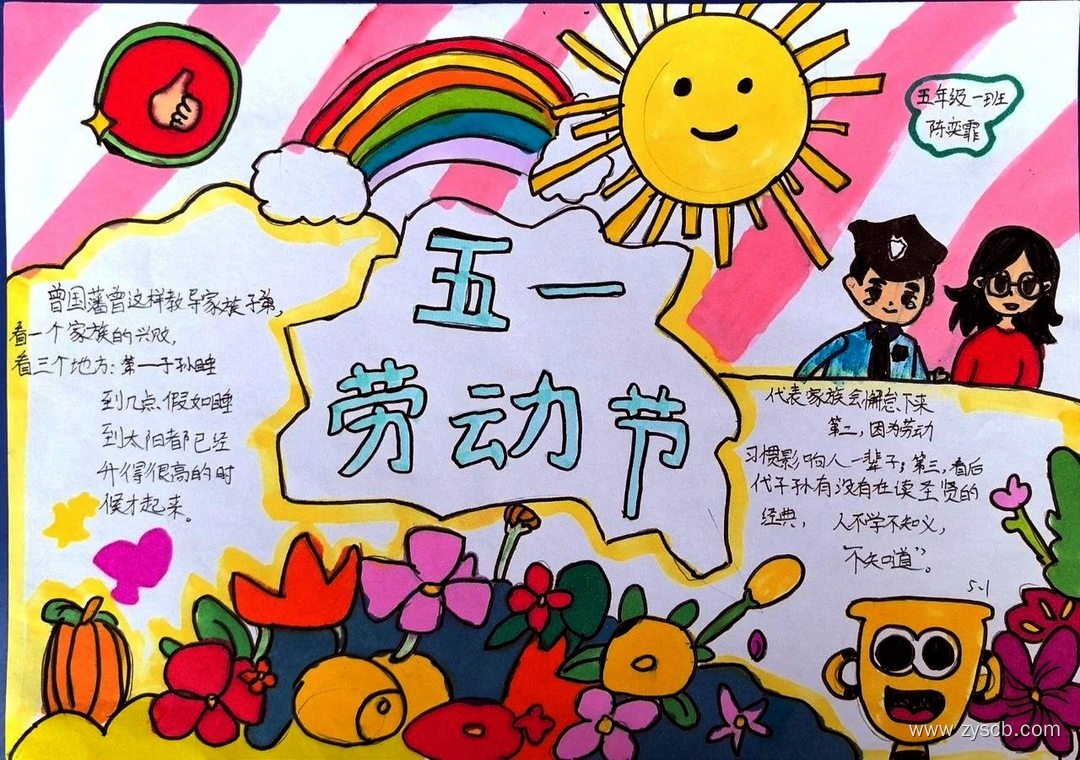 五年级一班
陈奕霏
五一
劳动节
曾国藩曾这样教导家族子弟,
看一个家族的兴败,
看三个地方:第一子孙睡
到几点,假如睡
到太阳都已经
升得很高的时
候才起来。
代表家族会懈怠下来
第二,因为劳动
习惯影响人一辈子;第三,看后
代子孙有没有在读圣贤的
经典, 人不学不知义,
"不知道"。
5.1
www.zyscb.com